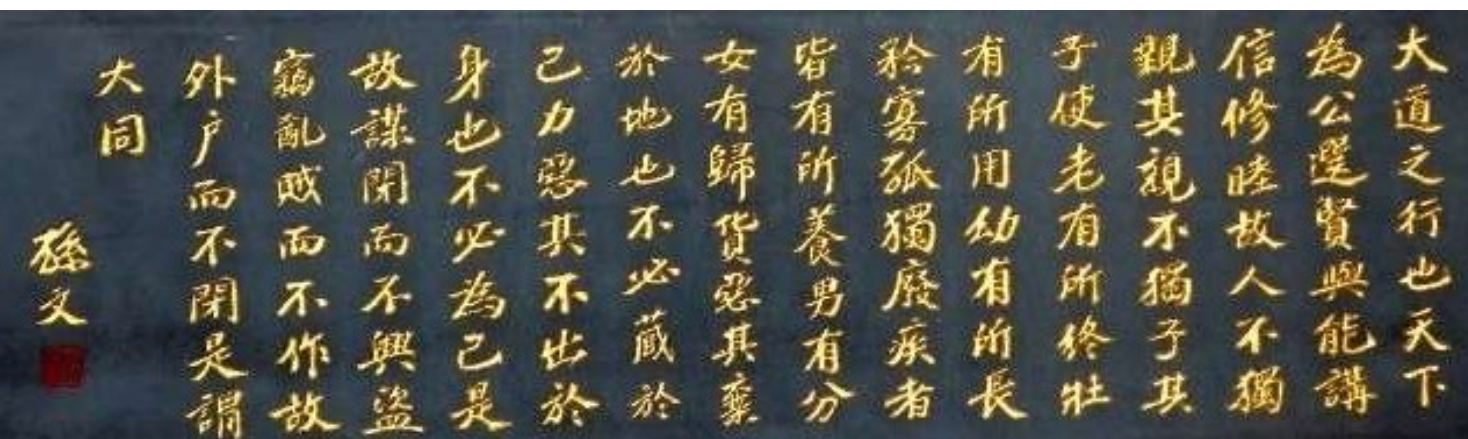 大道之行也天下
為公選賢與能講
信修睦故人不獨
親其親不獨子其
子使老有所終壯
有所用幼有所長
矜寡孤獨廢疾者
皆有所養男有分
女有歸貨惡其棄
於地也不必藏於
己力惡其不出於
身也不必為己是
故謀閉而不興盜
竊亂賊而不作故
外户而不閉是謂
大同
孫文